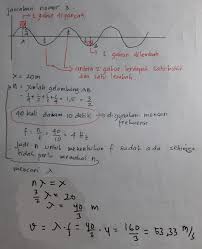 jawaban nomor 3
1 gabus dipuncak
A
B
1 gabus dilembah
antara 2 gabus terdapat satu bukit
dan satu lembah
x = 20m
n = Jumlah gelombang AB
= 1,5 = 3/2
40 kali dalam 10 detik → digunakan mencari
frekuensi
f = n/t = 40/10 = 4 Hz
Jadi n untuk menentukan f sudah ada sehingga
tidak perlu mencari n,
mencari λ
nλ = x
3/2 λ = 20
λ = 40/3 m
v = λ . f = 40/3 . 4 = 160/3 = 53,33 m/s